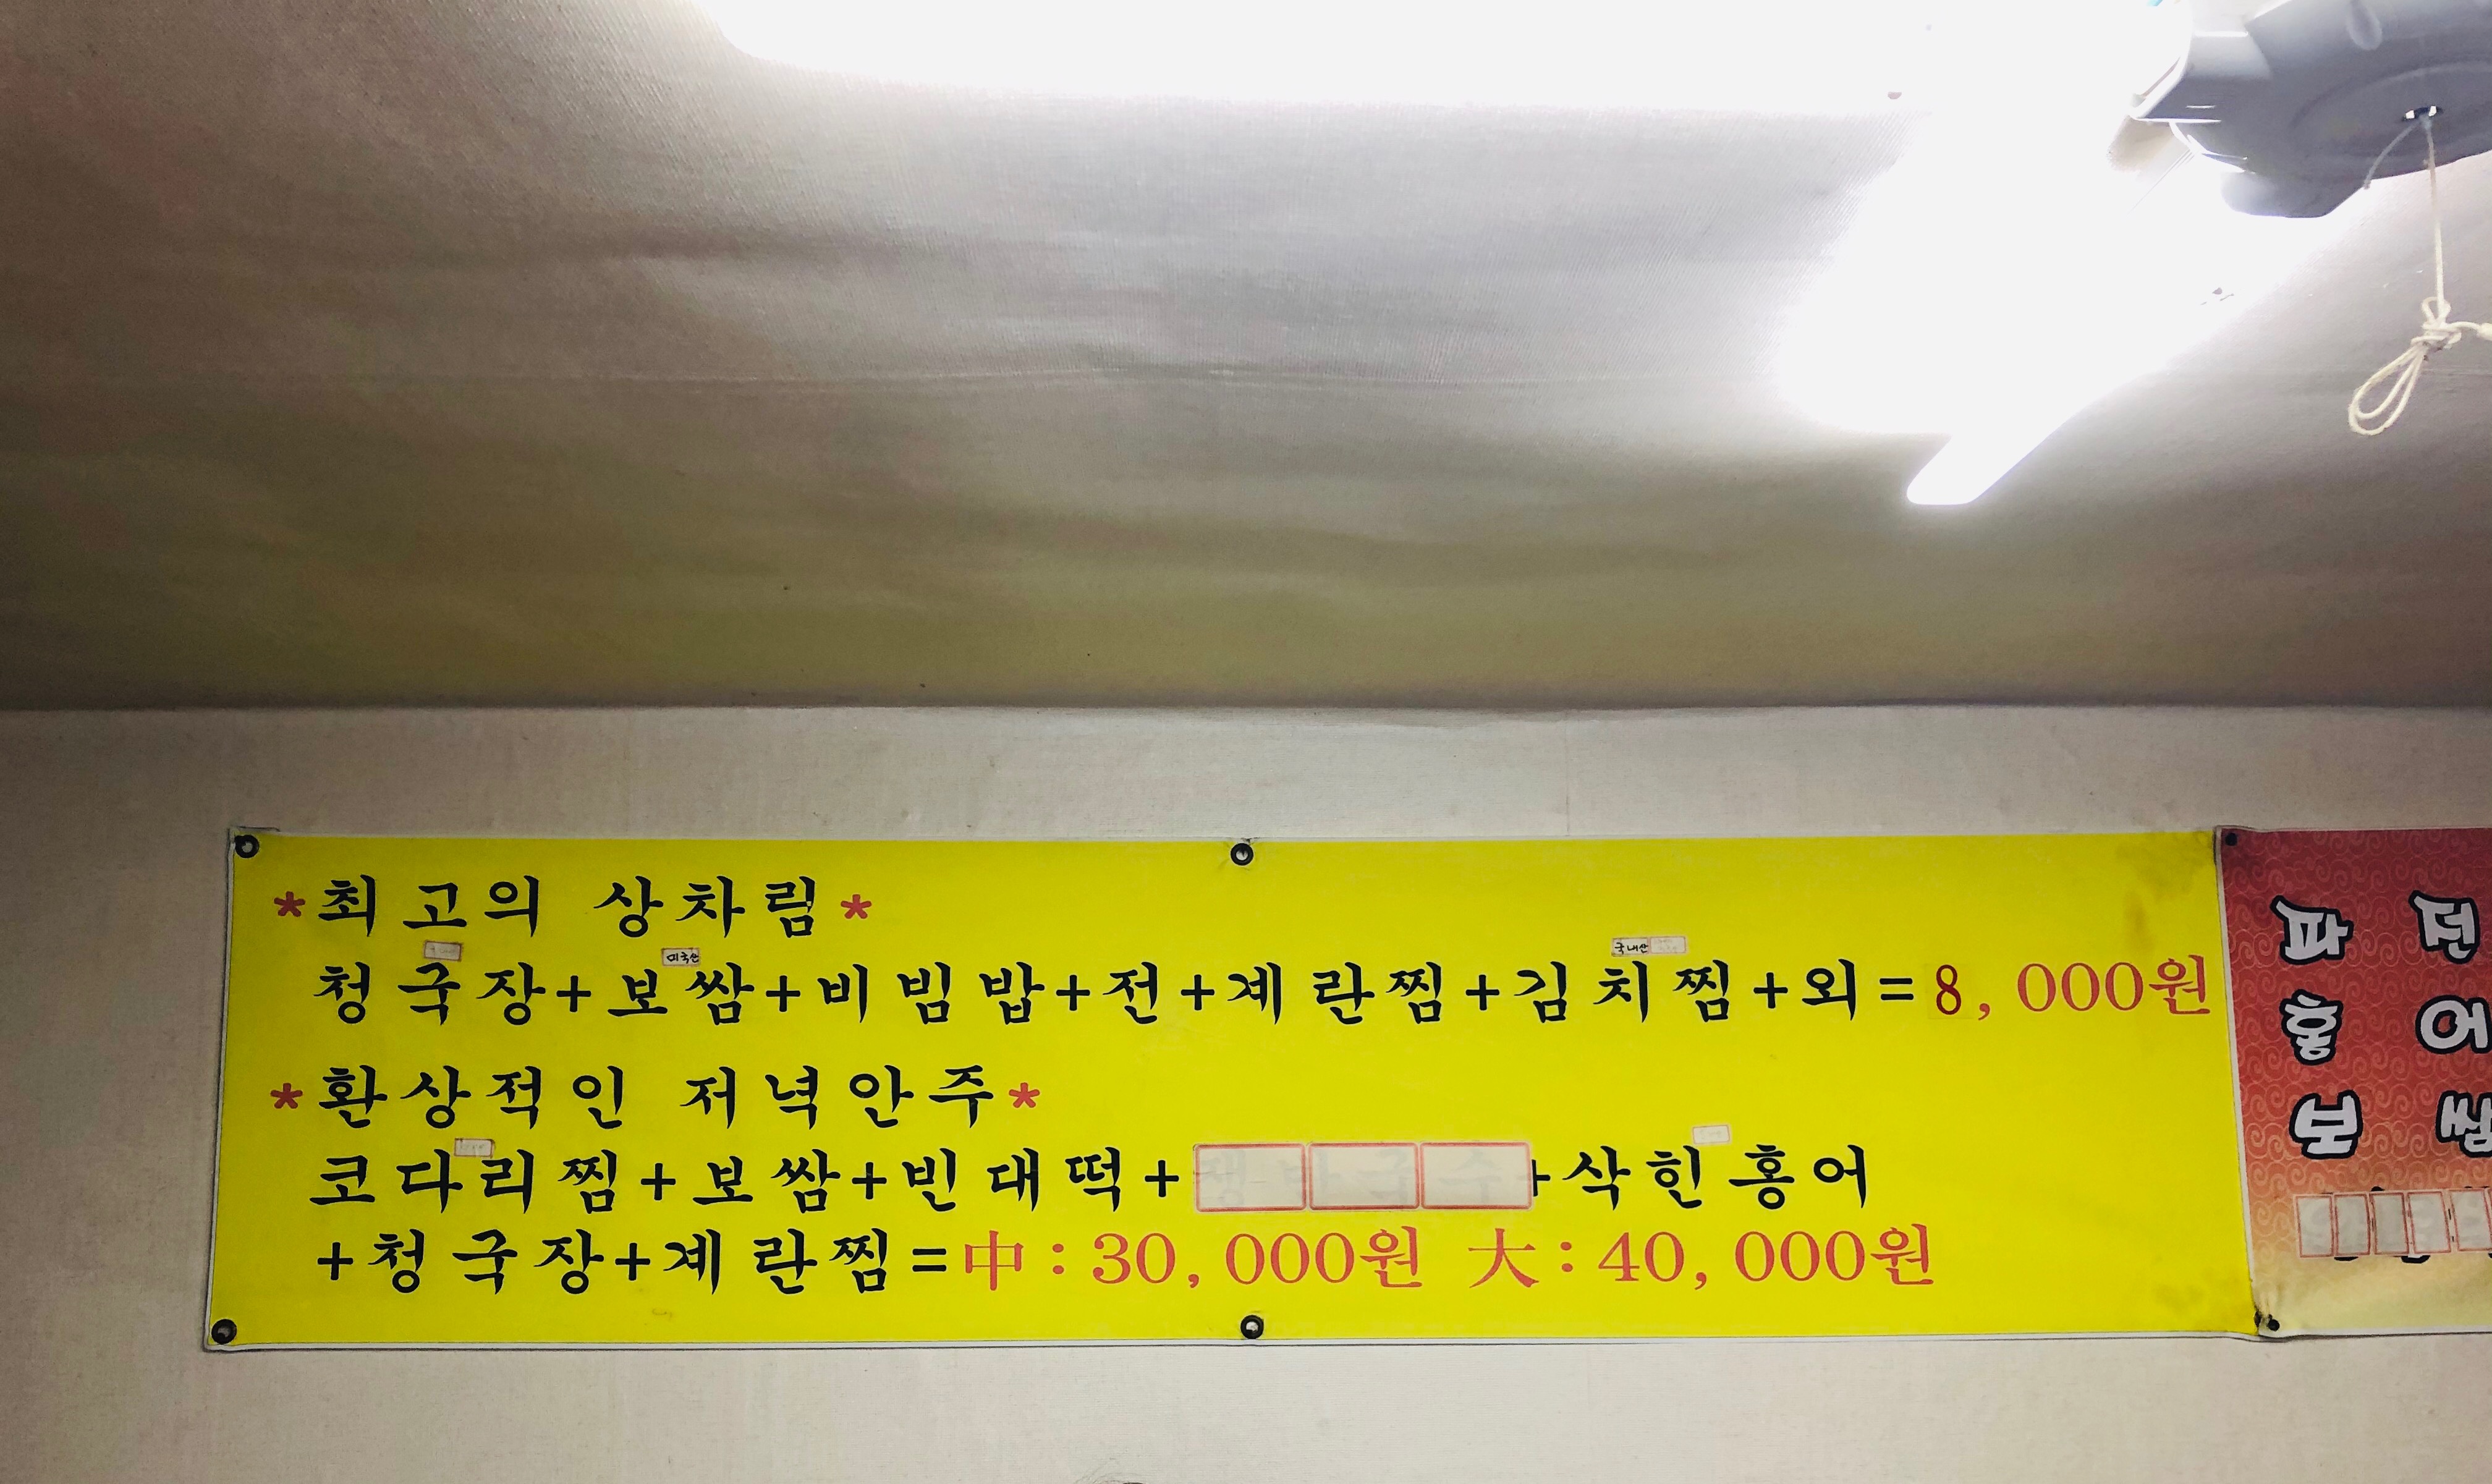 *최고의 상차림*
미국산 국내산
청국장+보쌈+비빔밥+전+계란찜+김치찜+외=8,000원
*환상적인 저녁안주*
코다리찜+보쌈+빈대떡+ +삭힌홍어
+청국장+계란찜=中:30,000원 大:40,000원
파전
홍어
보쌈